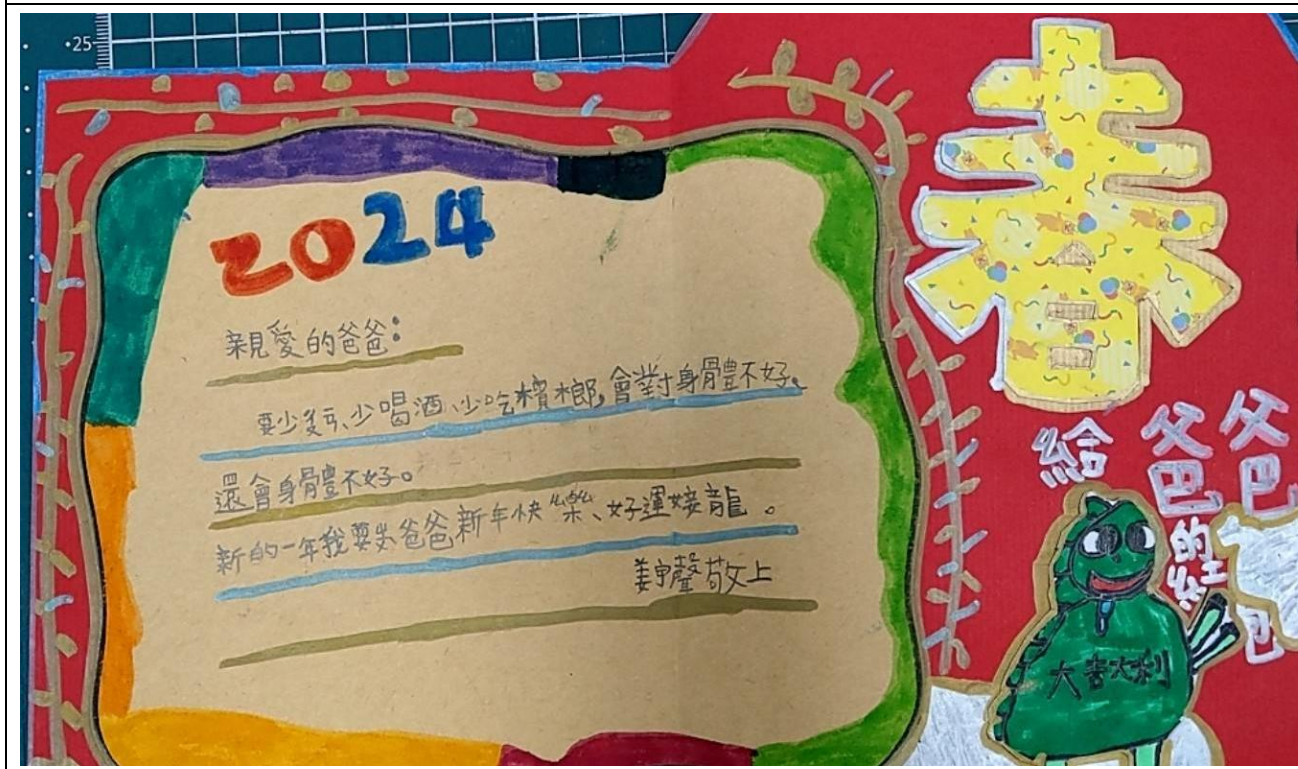 25
2024
親愛的爸爸：
要少ㄎㄢ、少喝酒、少吃檳榔,會對身體不好。
還會身體不好。
新的一年我要爸爸新年快樂、好運接龍。
姜宇馨敬上
春
給爸爸的紅包
大吉大利